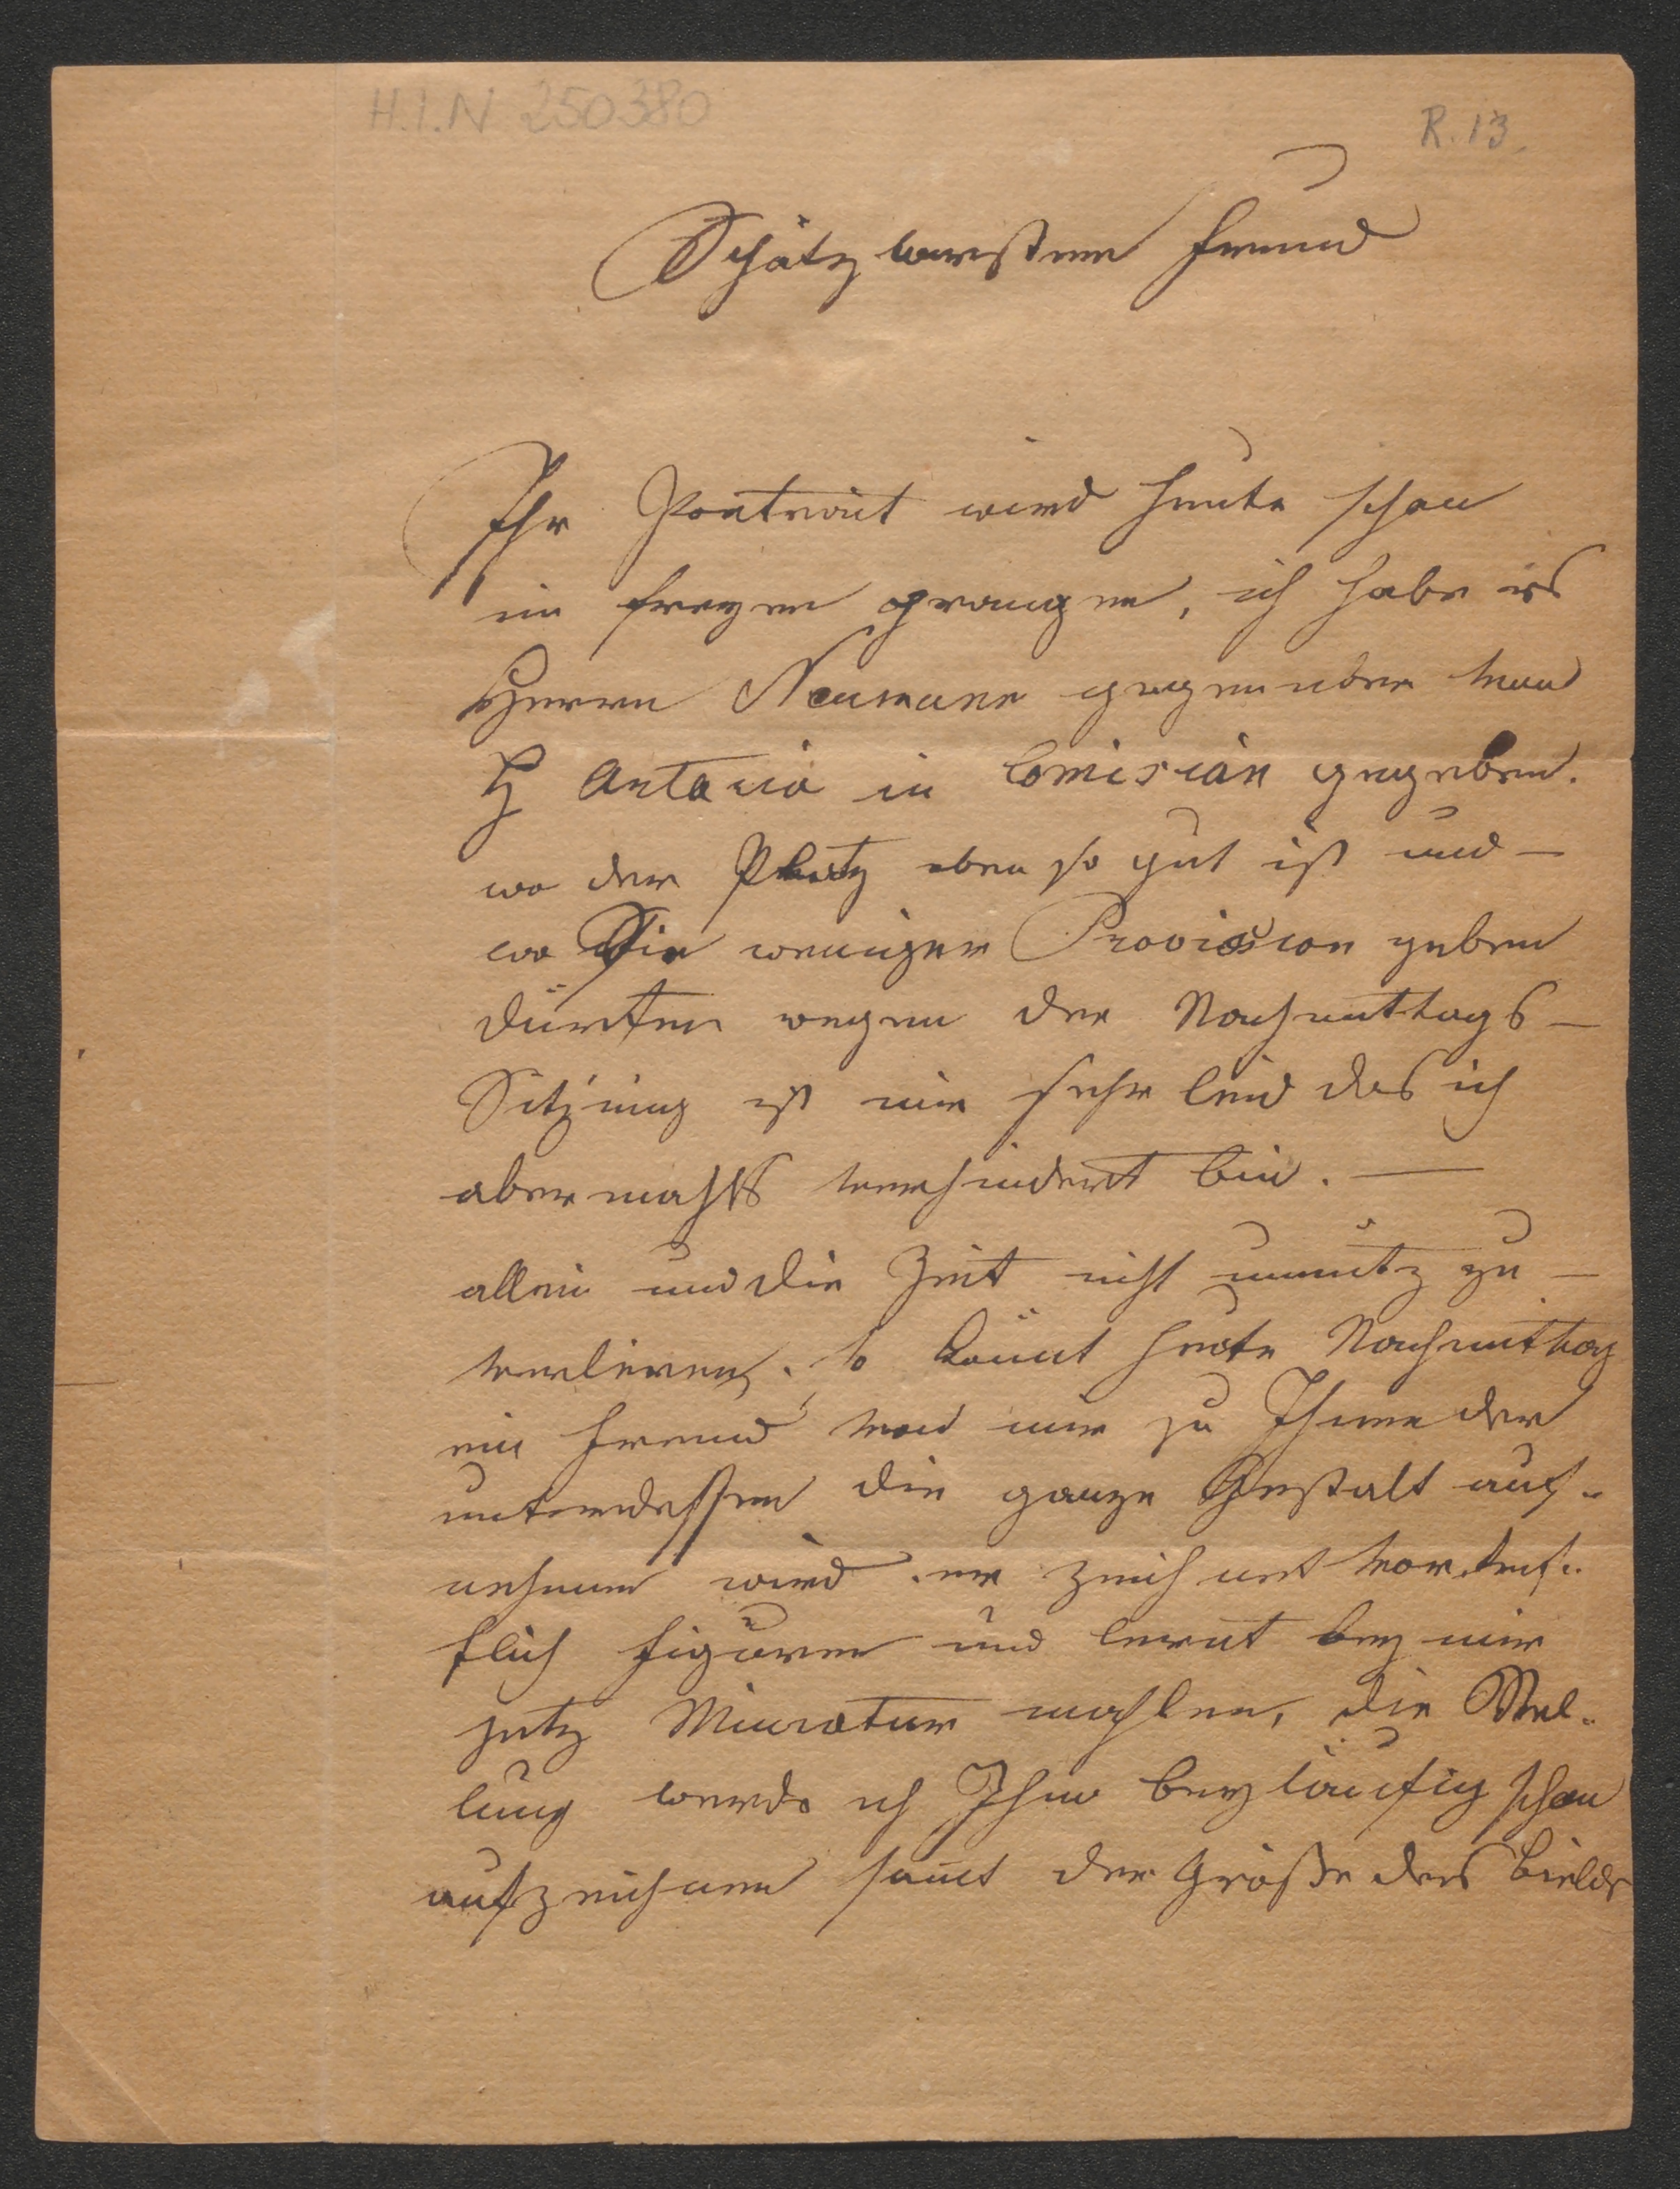 H.I.N 250380
R. 13.
Schätzbarster Freund
Ihr Portrait wird heute schon
im freyen prangen, ich habe es
Herrn Neumann gegenüber von
H Artaria in Comision gegeben.
wo der Platz eben so gut ist und –
wo Sie weniger Provission geben
dürften wegen der Nachmittags –
Sitzung ist mir sehr leid das ich
abermahls verhindert bin. —
allein um die Zeit nicht unnütz zu –
verlieren. so kömt heute Nachmittag
ein Freund von mir zu Ihnen der
unterdessen die ganze Gestalt auf-
nehmen wird. er zeichnet vortref-
flich Figuren und lernt bey mir
jetz Miniatur mahlen, die Stel-
lung werde ich Ihm beyläufig schon
aufzeichnen samt der Größe des Bilds